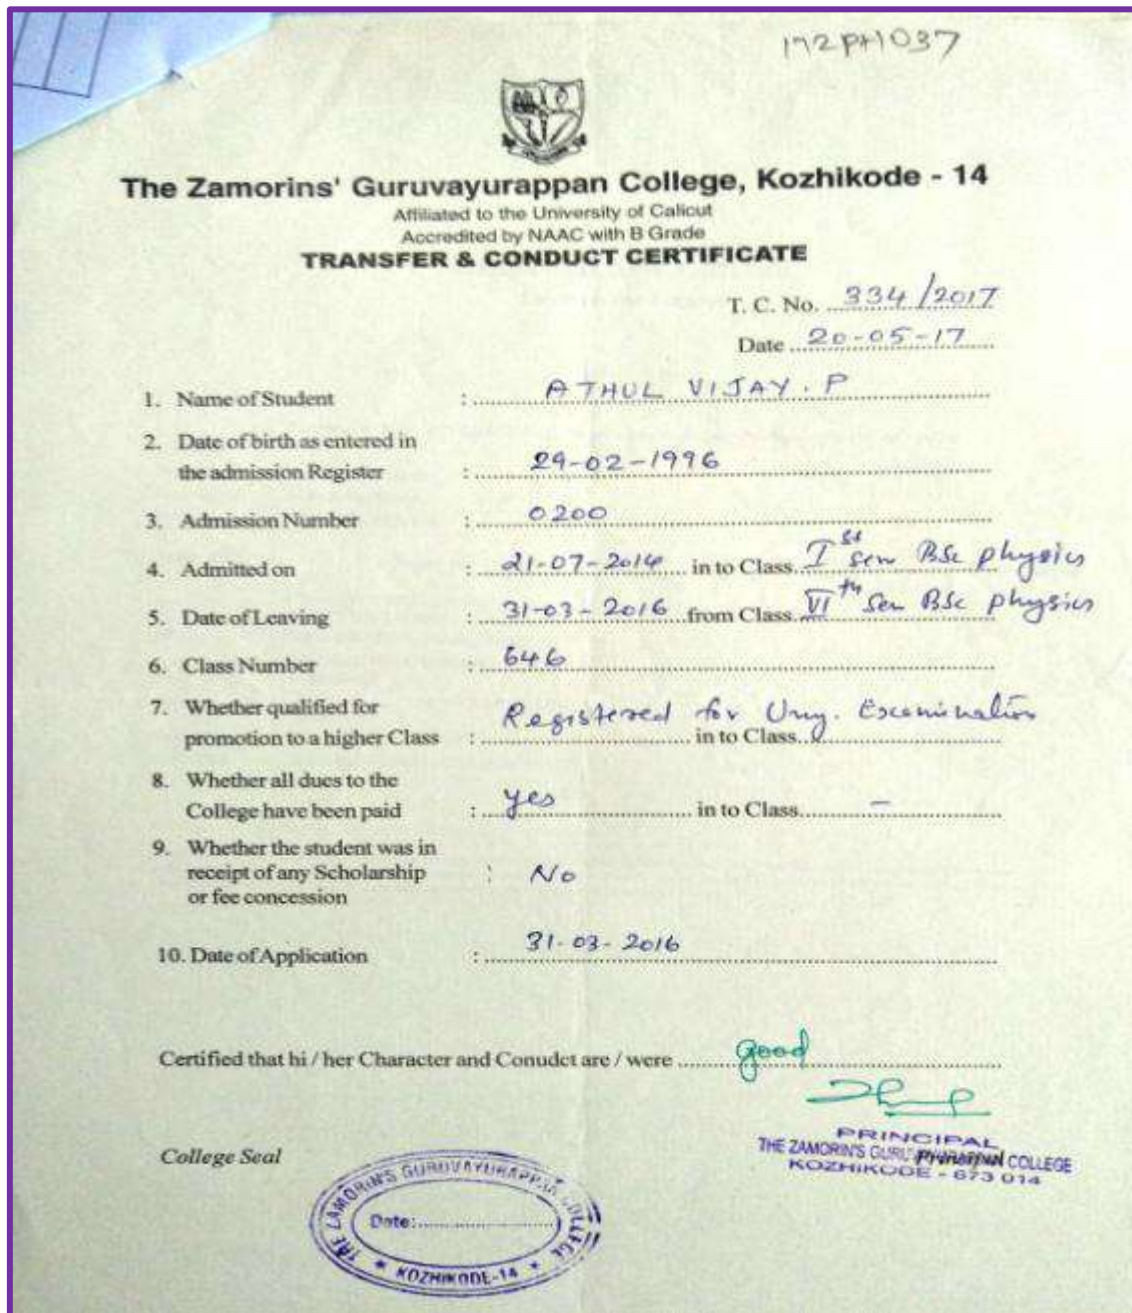 172PH1037
The Zamorins' Guruvayurappan College, Kozhikode - 14
Affiliated to the University of Calicut
Accredited by NAAC with B Grade
TRANSFER & CONDUCT CERTIFICATE
T. C. No. 334/2017
Date 20-05-17
1. Name of Student : ATHUL VIJAY. P
2. Date of birth as entered in
the admission Register : 29-02-1996
3. Admission Number : 0200
4. Admitted on : 21-07-2014 in to Class I st Sem BSc physics
5. Date of Leaving : 31-03-2016 from Class VI th Sem BSc physics
6. Class Number : 646
7. Whether qualified for
promotion to a higher Class : Registered for Uny. Examination in to Class
8. Whether all dues to the
College have been paid : yes in to Class –
9. Whether the student was in
receipt of any Scholarship : No
or fee concession
10. Date of Application : 31-03-2016
Certified that hi / her Character and Conudct are / were good
PRINCIPAL
College Seal
THE ZAMORIN'S COLLEGE
KOZHIKODE - 673 014
THE ZAMORIN'S GURUVAYURAPPAN COLLEGE
Date:
* KOZHIKODE-14 *